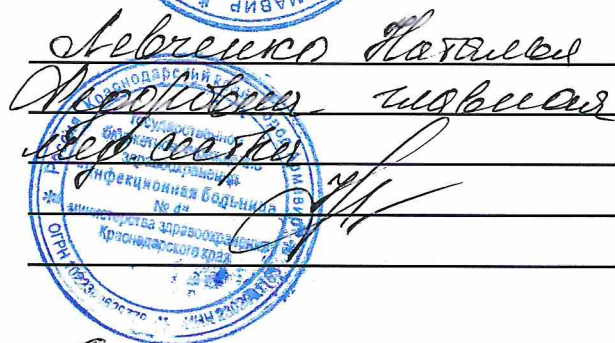 МАВИР
Левченко Наталья
главная
медсестра
Россия Краснодарский край город Армавир
государственное
бюджетное учреждение
здравоохранения
"Инфекционная больница
№ 4"
министерства здравоохранения
Краснодарского края
ОГРН
ИНН